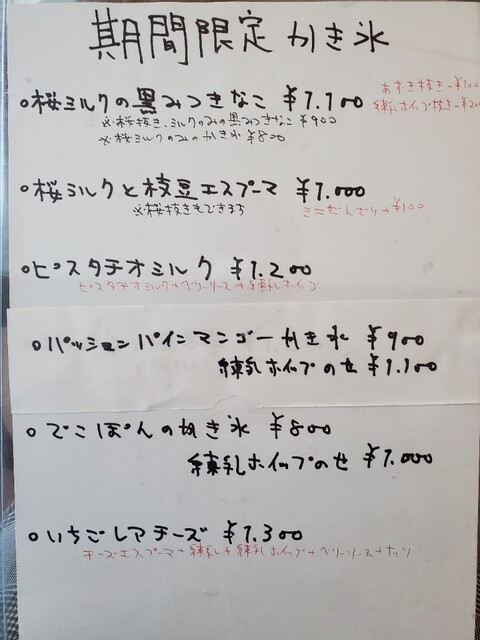 期間限定 かき氷
あずき抜き-¥100
練乳ホイップ抜き-¥200
○桜ミルクの黒みつきなこ ¥1.100
※桜抜き、ミルクのみの黒みつきなこ ¥900
※桜ミルクのみのかき氷 ¥800
○桜ミルクと枝豆エスプーマ ¥1.000
※桜抜きもできます
ミニぜんざい+¥100
○ピスタチオミルク ¥1.200
ピスタチオミルク+ベリーソース+練乳ホイップ
○パッションパインマンゴーかき氷 ¥900
練乳ホイップのせ ¥1.100
○でこぽんのかき氷 ¥800
練乳ホイップのせ ¥1.000
○いちごレアチーズ ¥1.300
チーズエスプーマ+練乳+練乳ホイップ+ベリーソース+ナッツ